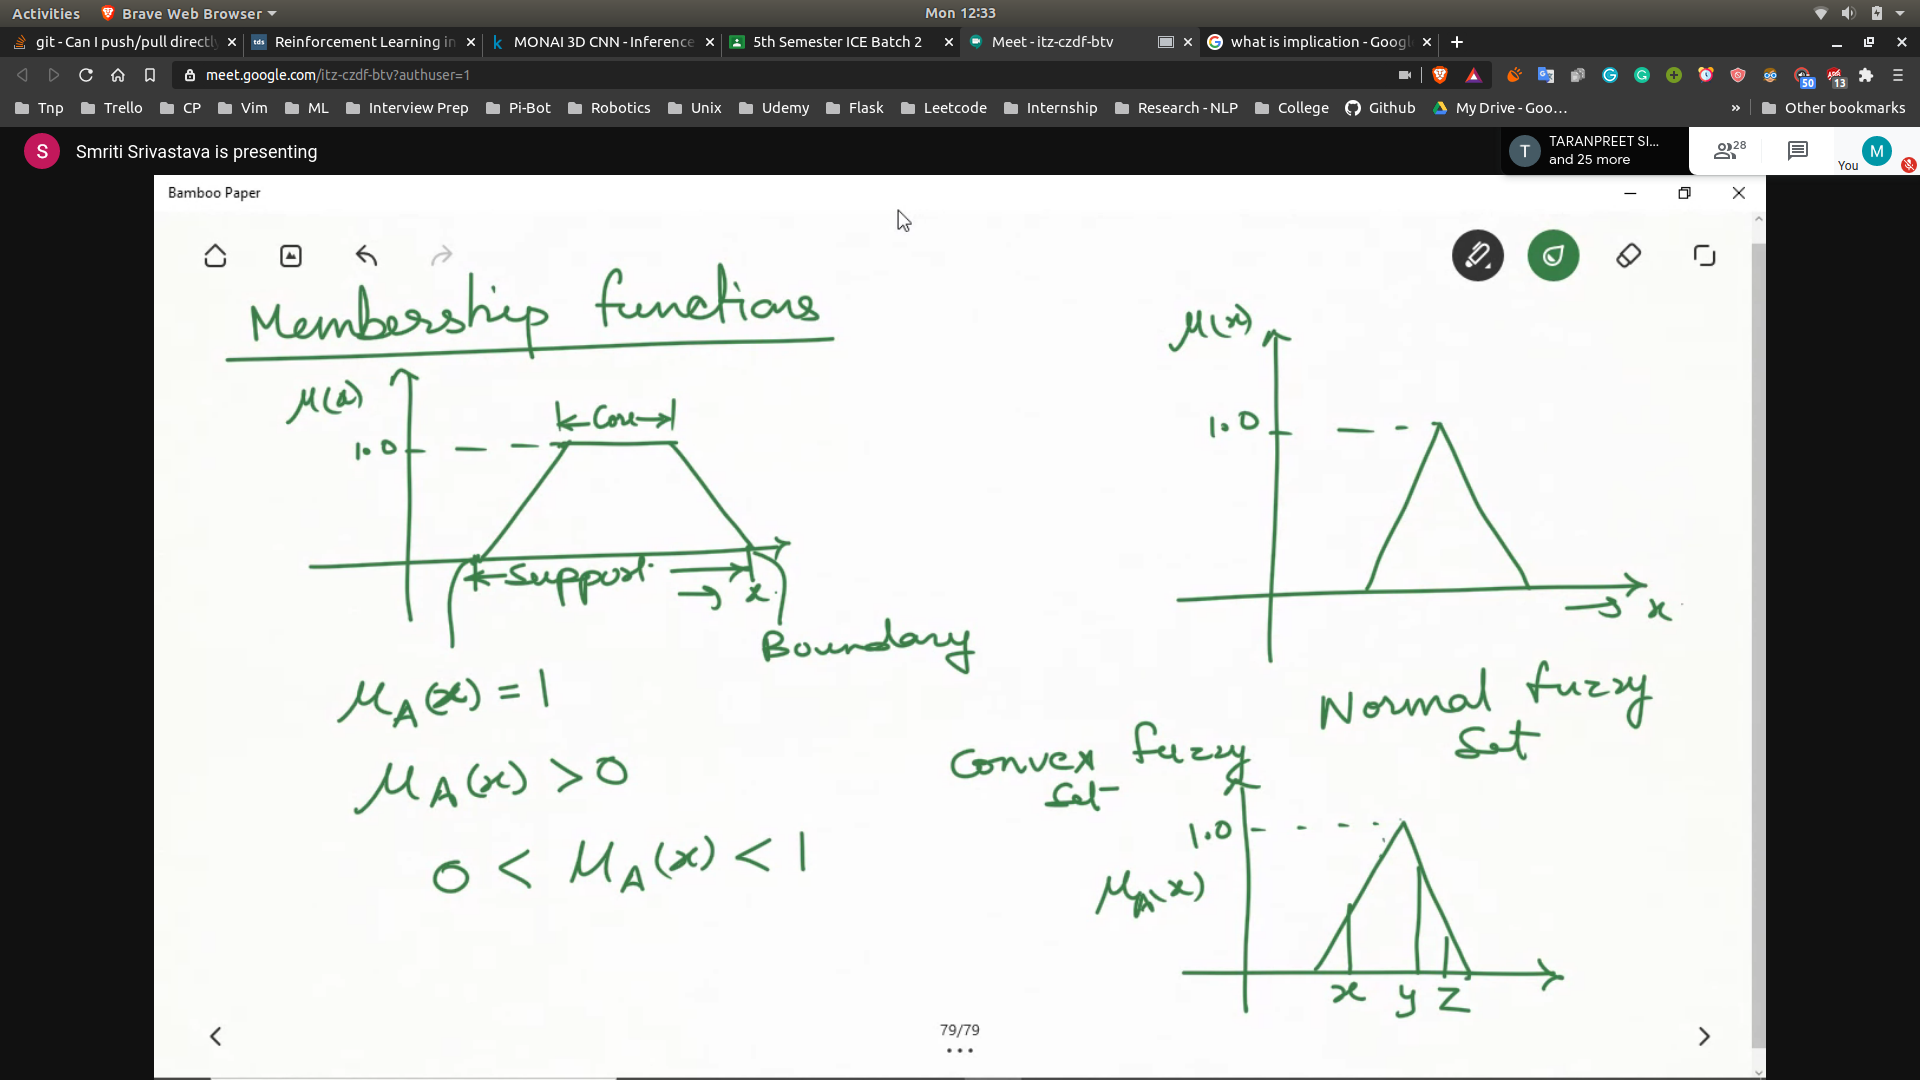 Activities
Brave Web Browser
Mon 12:33
git - Can I push/pull directly
Reinforcement Learning in
MONAI 3D CNN - Inference
5th Semester ICE Batch 2
Meet - itz-czdf-btv
what is implication - Googl
meet.google.com/itz-czdf-btv?authuser=1
50
13
Tnp
Trello
CP
Vim
ML
Interview Prep
Pi-Bot
Robotics
Unix
Udemy
Flask
Leetcode
Internship
Research - NLP
College
Github
My Drive - Goo...
»
Other bookmarks
S
Smriti Srivastava is presenting
T
TARANPREET SI...
and 25 more
28
You
M
Bamboo Paper
Membership functions
μ(x)
1.0
Core
Support
x
Boundary
μA(x) = 1
μA(x) > 0
0 < μA(x) < 1
μ(x)
1.0
x
Normal fuzzy
Set
Convex fuzzy
Set
1.0
μA(x)
x y z
79/79